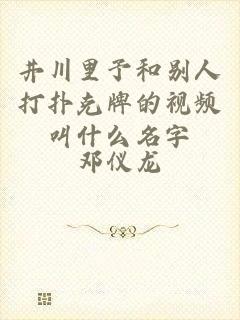 井川里予和别人
打扑克牌的视频
叫什么名字
邓仪龙